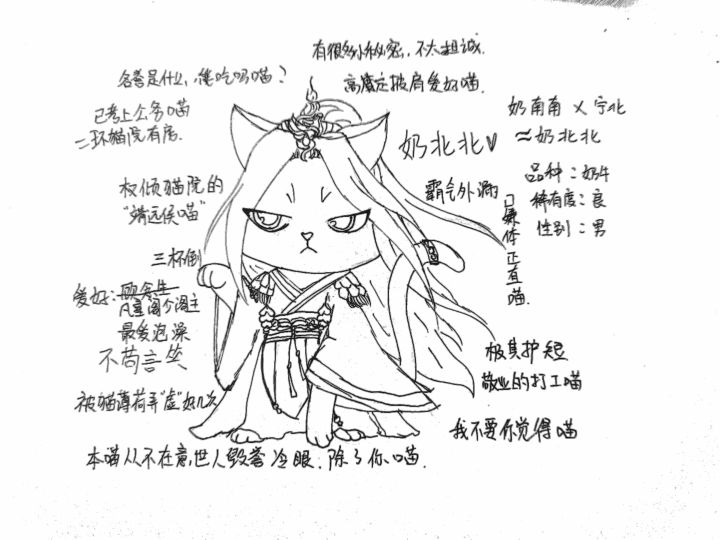 有很多小秘密,不太坦诚.
名誉是什么,能吃吗喵?
高魔定披肩爱好喵.
已考上公务喵
二环猫院有房.
奶南南 × 宁北
≈奶北北
奶北北♥
品种:奶牛
稀有度:良
性别:男
霸气外漏
已兼体正直喵.
权倾猫院的
“靖远侯喵”
三杯倒
爱好:
阁主
最爱泡澡
不苟言笑
极其护短
敬业的打工喵
被猫薄荷弄“虚”好几次
我不要你觉得喵
本喵从不在意,世人毁誉冷眼.除了你.喵.